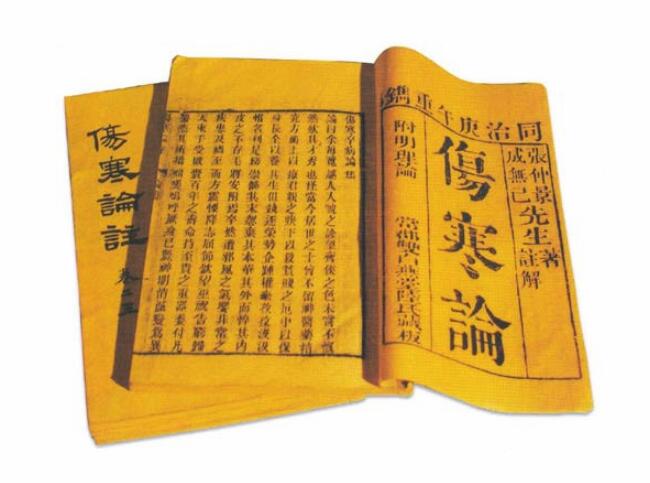 同治庚午重鐫
張仲景
成無己
先生
著
註解
傷寒論
附明理論
常郡雙白燕堂陸氏藏板
傷寒卒病論集
論曰余每覽越人入虢之診望齊侯之色未嘗不慨
然歎其才秀也怪當今居世之士曾不留神醫藥精
究方術上以療君親之疾下以救貧賤之厄中以保
身長全以養其生但競逐榮勢企踵權豪孜孜汲汲
惟名利是務崇飾其末忽棄其本華其外而悴其內
皮之不存毛將安附焉卒然遭邪風之氣嬰非常之
疾患及禍至而方震慄降志屈節欽望巫祝告窮歸
天束手受敗賚百年之壽命持至貴之重器委付凡
醫恣其所措咄嗟嗚呼厥身已斃神明消滅變為異
傷寒論註
卷